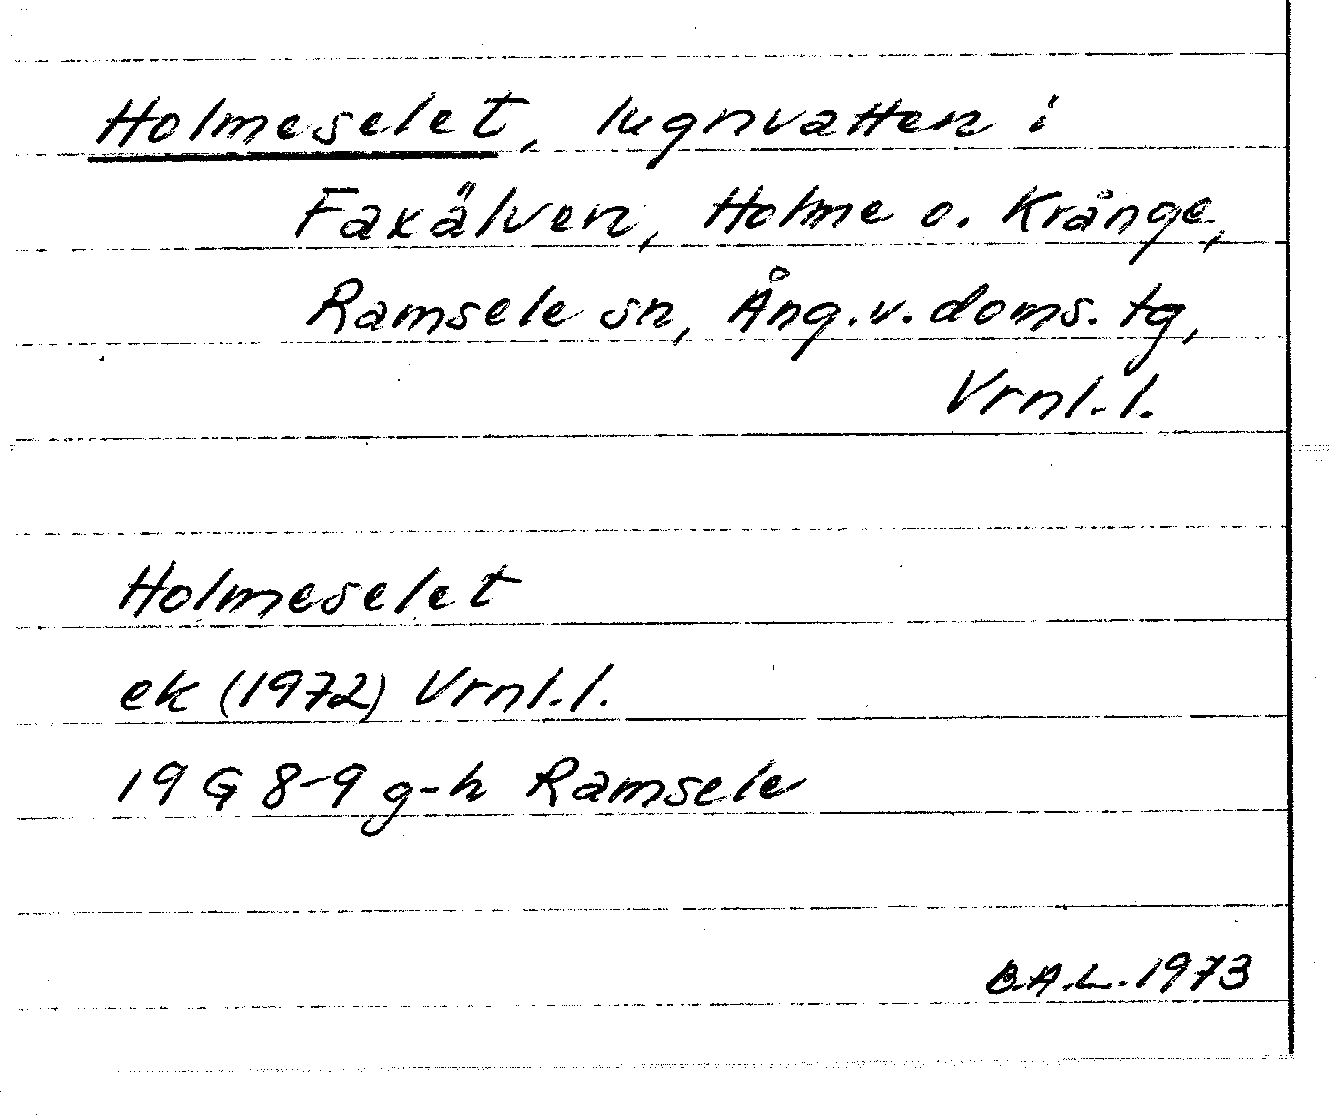 Holmeselet, lugnvatten i
Faxälven, Holme o. Krånge,
Ramsele sn, Ång.v. doms. tg,
Vrnl.l.
Holmeselet
ek (1972) Vrnl.l.
19 G 8-9 g-h Ramsele
B.A.L. 1973